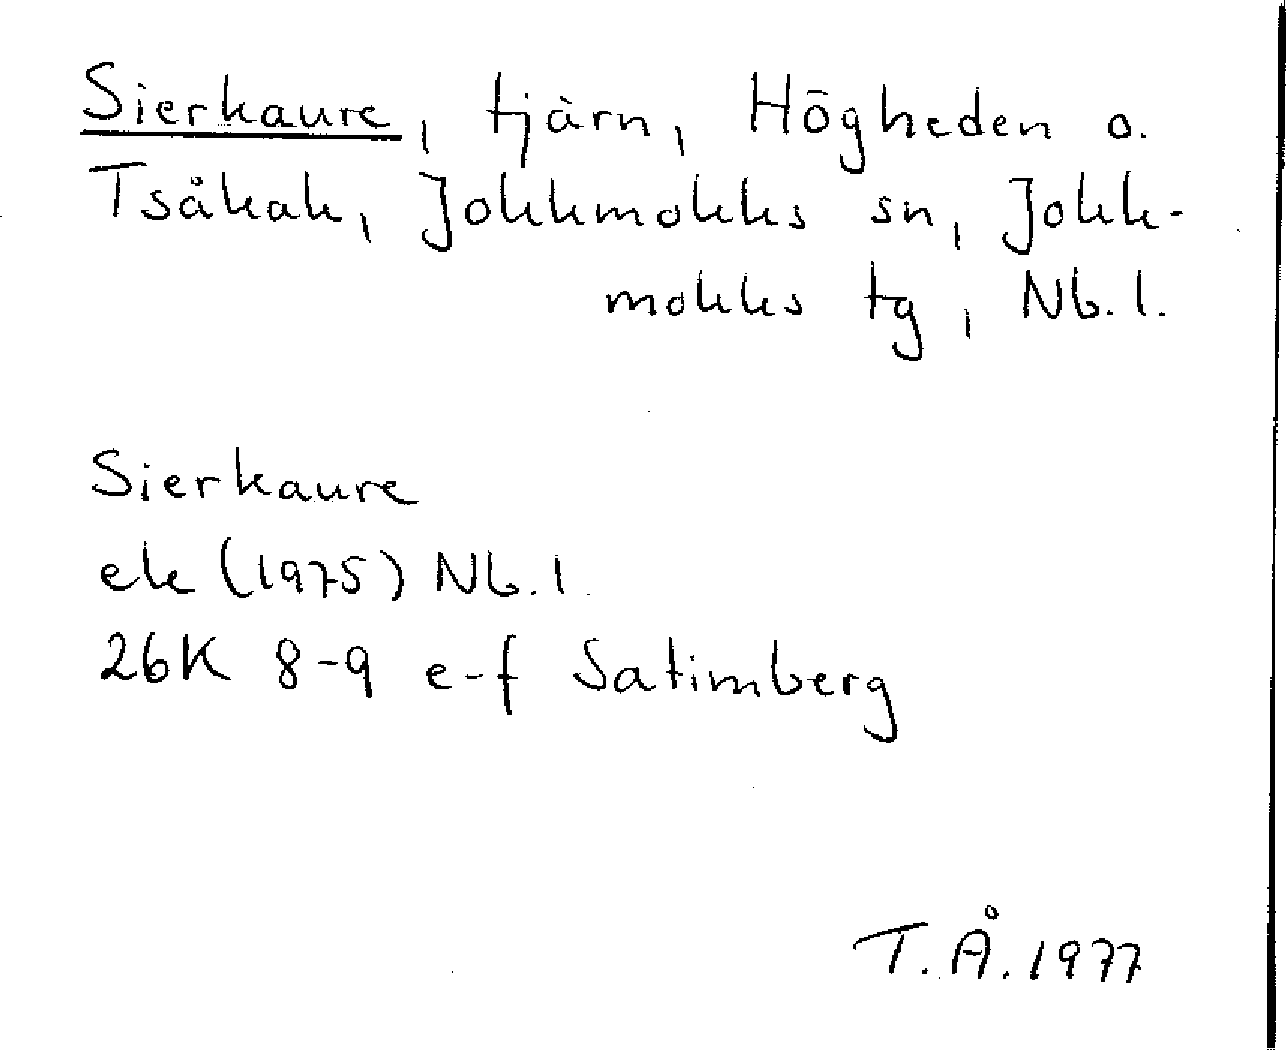 Sierkaure, tjärn, Högheden o.
Tsåkak, Jokkmokks sn, Jokk-
mokks tg, Nb. l.
Sierkaure
ek (1975) Nb. l.
26K 8-9 e-f Satimberg
T. Å. 1977